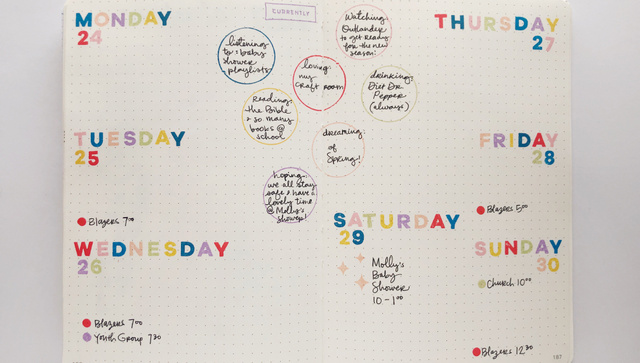 MONDAY
24
TUESDAY
25
Blazers 7:00
WEDNESDAY
26
Blazers 7:00
Youth Group 7:30
CURRENTLY
listening
to: baby
shower
playlists
Watching:
Outlander
to get ready
for the new
season!
loving:
my
craft room
drinking:
Diet Dr.
Pepper
(always)
Reading:
the Bible
+ so many
books @
school
dreaming:
of
Spring!
hoping:
we all stay
safe & have a
lovely time
@ Molly's
shower!
THURSDAY
27
FRIDAY
28
Blazers 5:00
SATURDAY
29
Molly's
Baby
Shower
10-1:00
SUNDAY
30
Church 10:00
Blazers 12:30
187